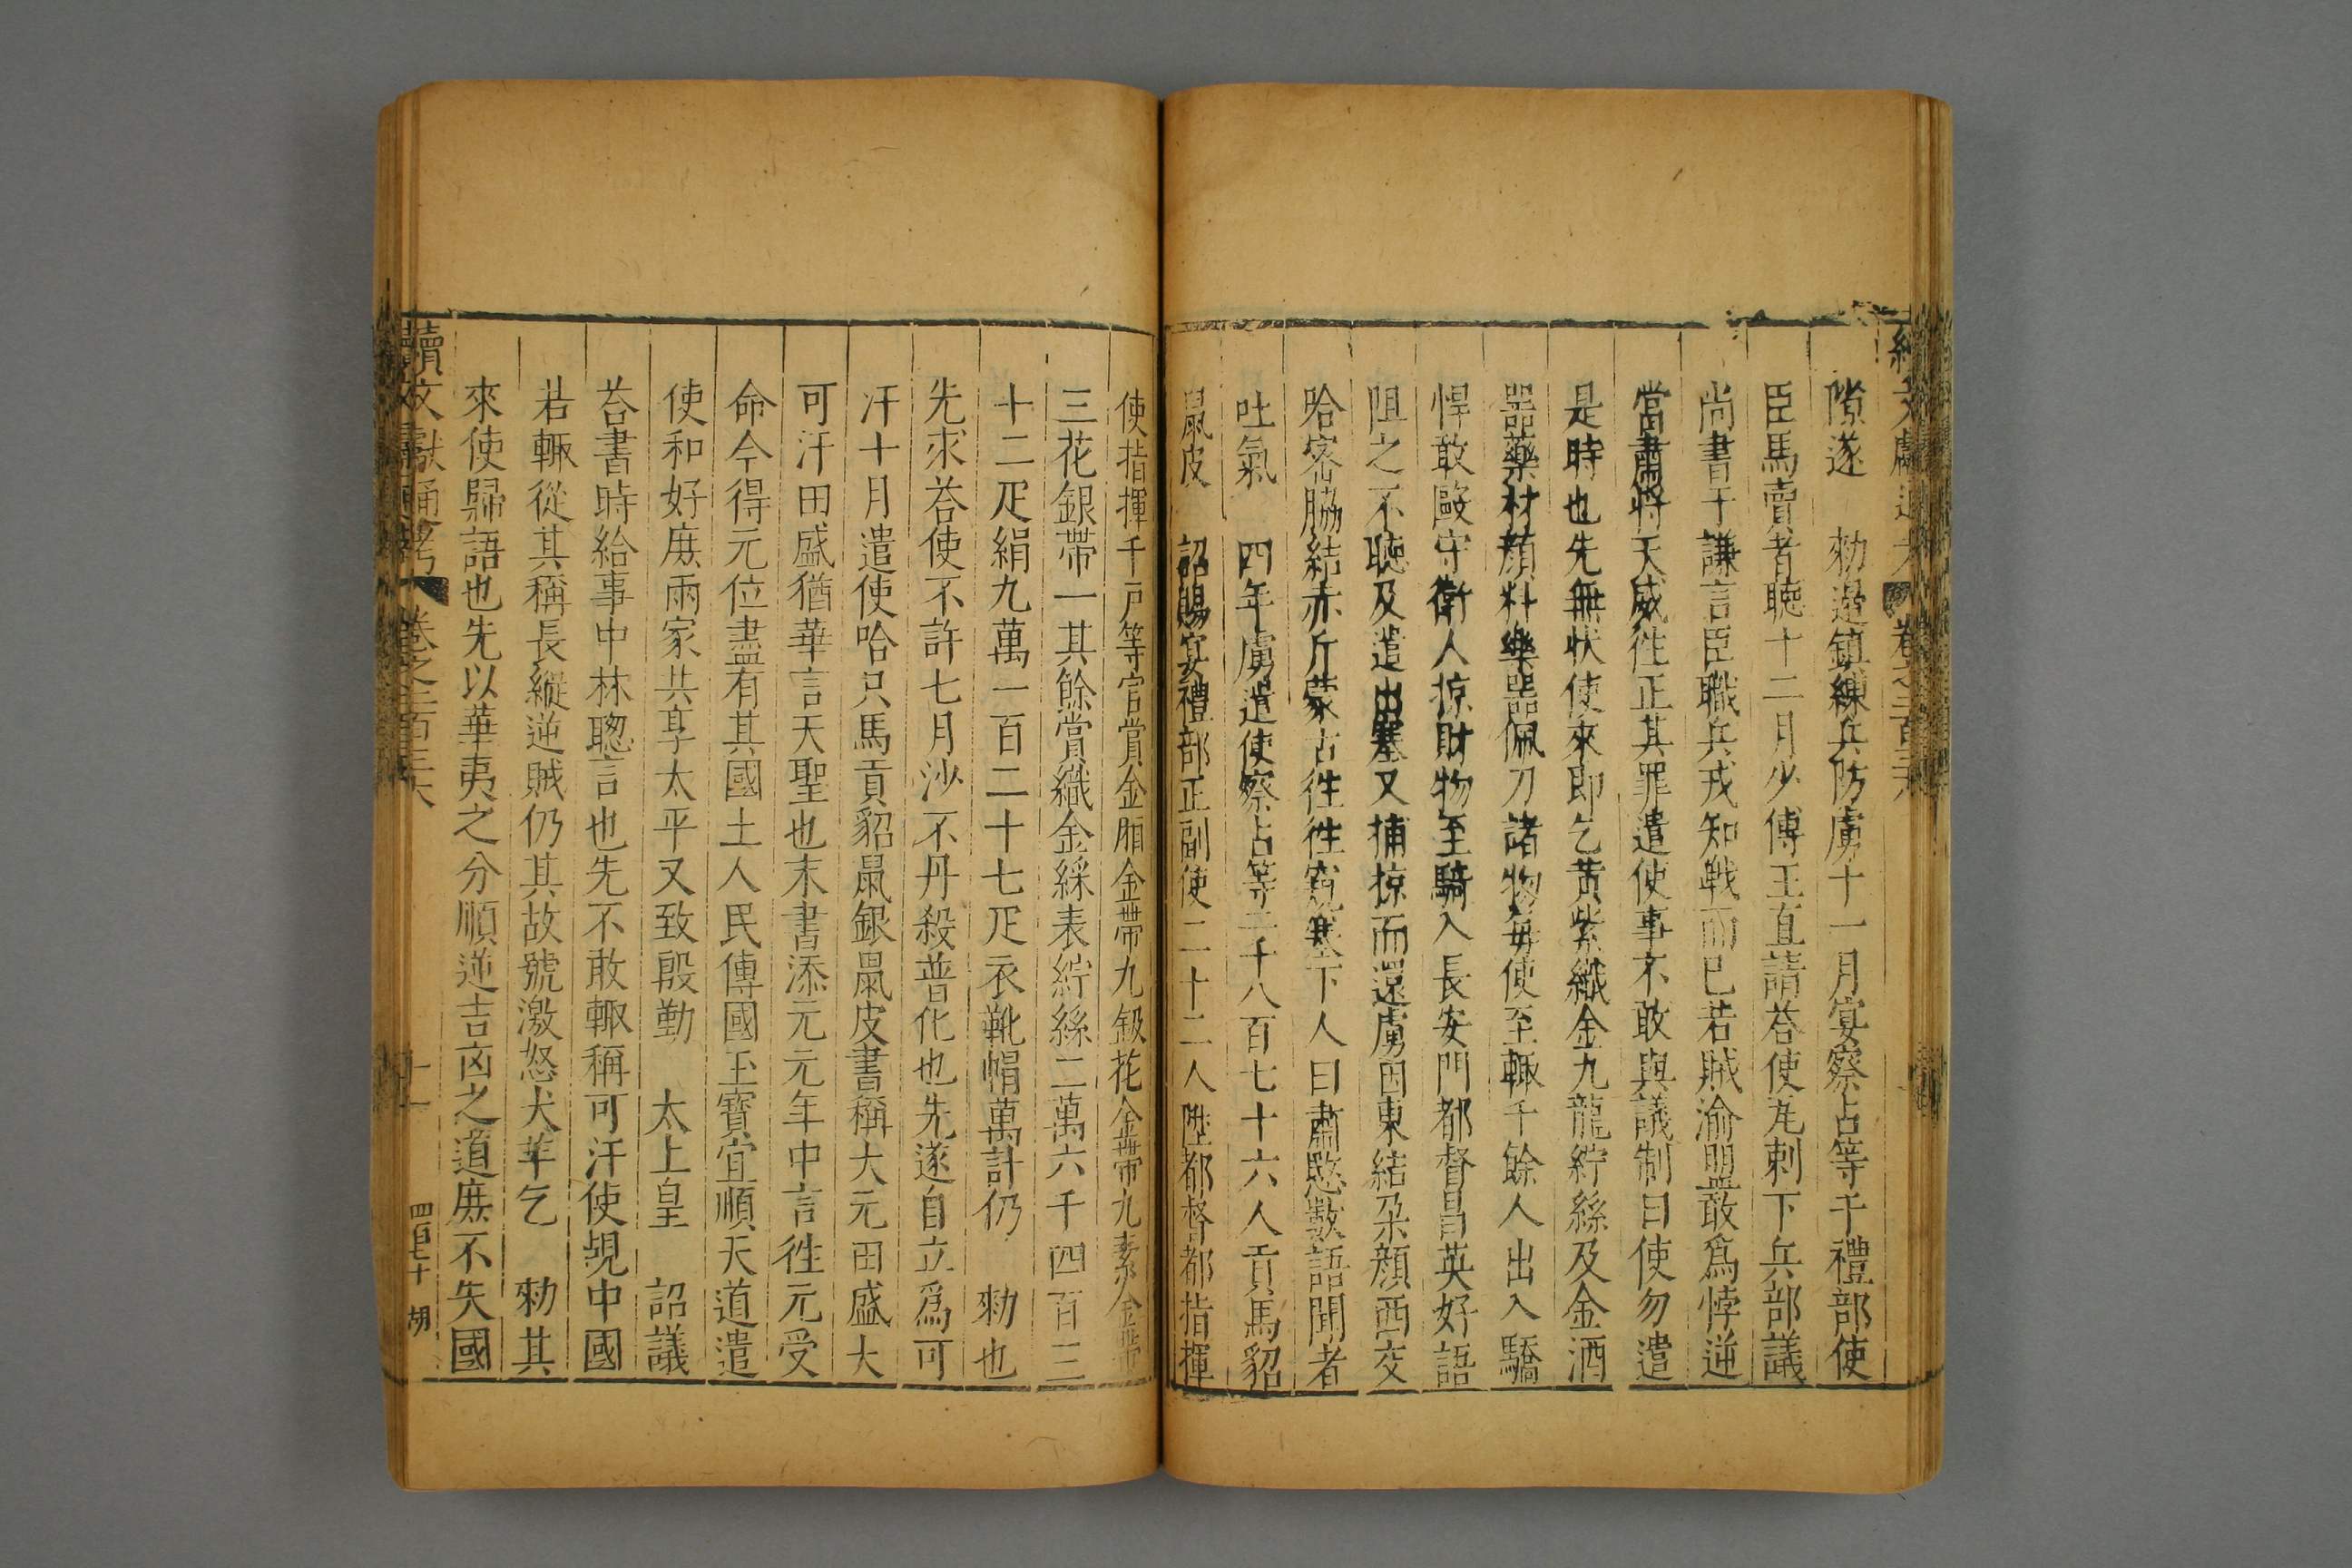 隙遂　勑邊鎮練兵防虜十一月宴察占等千禮部使
臣馬賣者聽十二月少傅王直請荅使㡳剌下兵部議
尚書于謙言臣職兵戎知戰而已若賊渝盟敢爲悖逆
當肅將天威徃正其罪遣使事不敢與議制曰使勿遣
是時也先無狀使來即乞黄紫織金九龍紵絲及金酒
器藥材顔料樂器佩刀諸物毎使至輒千餘人出入驕
悍敢毆守衛人掠財物至騎入長安門都督昌英好語
阻之不聽及遣出塞又捕掠而還虜因東結朶顔西交
哈宻脇結赤斤蒙古徃徃窺塞下人曰肅愍數語聞者
吐氣　四年虜遣使察占等二千八百七十六人貢馬貂
鼠皮　詔賜宴禮部正副使二十二人陞都督都指揮
使指揮千戸等官賞金廂金帶九鈒花金帶九素金帶
三花銀帶一其餘賞織金綵表紵絲二萬六千四百三
十二疋絹九萬一百二十七疋衣靴帽萬計仍　勑也
先求荅使不許七月沙不丹殺普化也先遂自立爲可
汗十月遣使哈只馬貢貂鼠銀鼠皮書稱大元田盛大
可汗田盛猶華言天聖也末書添元元年中言徃元受
命今得元位盡有其國土人民傳國玉寳宜順天道遣
使和好庶兩家共享太平又致殷勤　太上皇　詔議
荅書時給事中林聰言也先不敢輒稱可汗使覘中國
若輒從其稱長縱逆賊仍其故號激怒犬羊乞　勑其
來使歸語也先以華夷之分順逆吉㐫之道庶不失國
續文獻通考　卷之二百三十六　十一　四百七十　胡